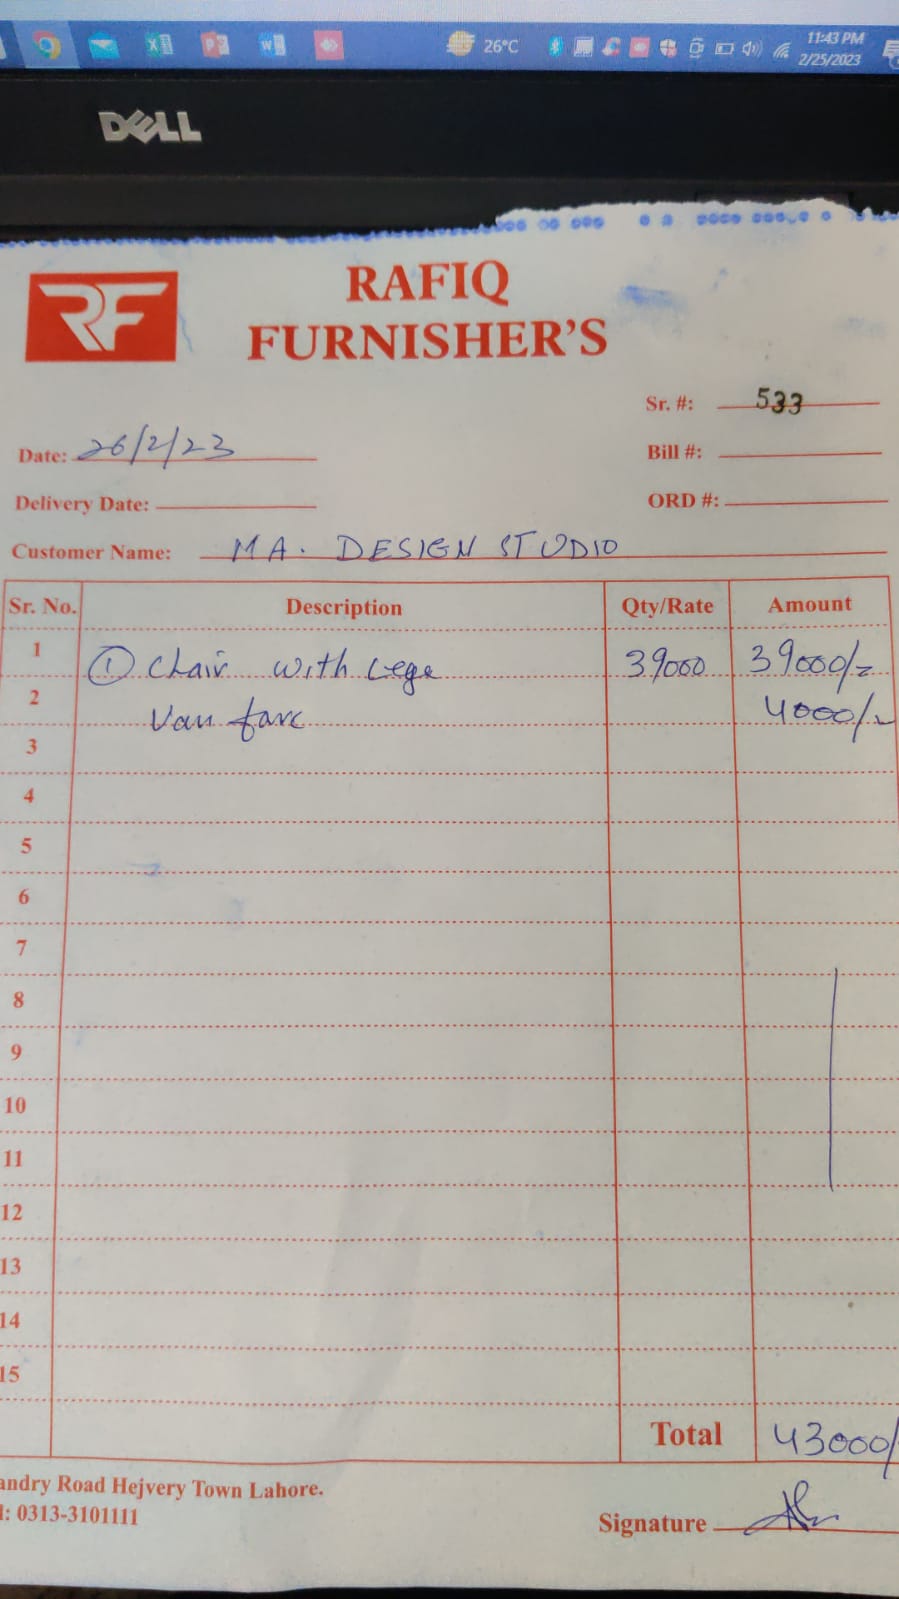 26°C
11:43 PM
2/25/2023
DELL
RF
RAFIQ
FURNISHER'S
Sr. #: 533
Date: 26/2/23
Bill #:
Delivery Date:
ORD #:
Customer Name: MA. DESIGN STUDIO
Sr. No. Description Qty/Rate Amount
1 ① Chair with Lege 39000 39000/=
2 Van fare 4000/-
3
4
5
6
7
8
9
10
11
12
13
14
15
Total 43000/-
andry Road Hejvery Town Lahore.
l: 0313-3101111
Signature